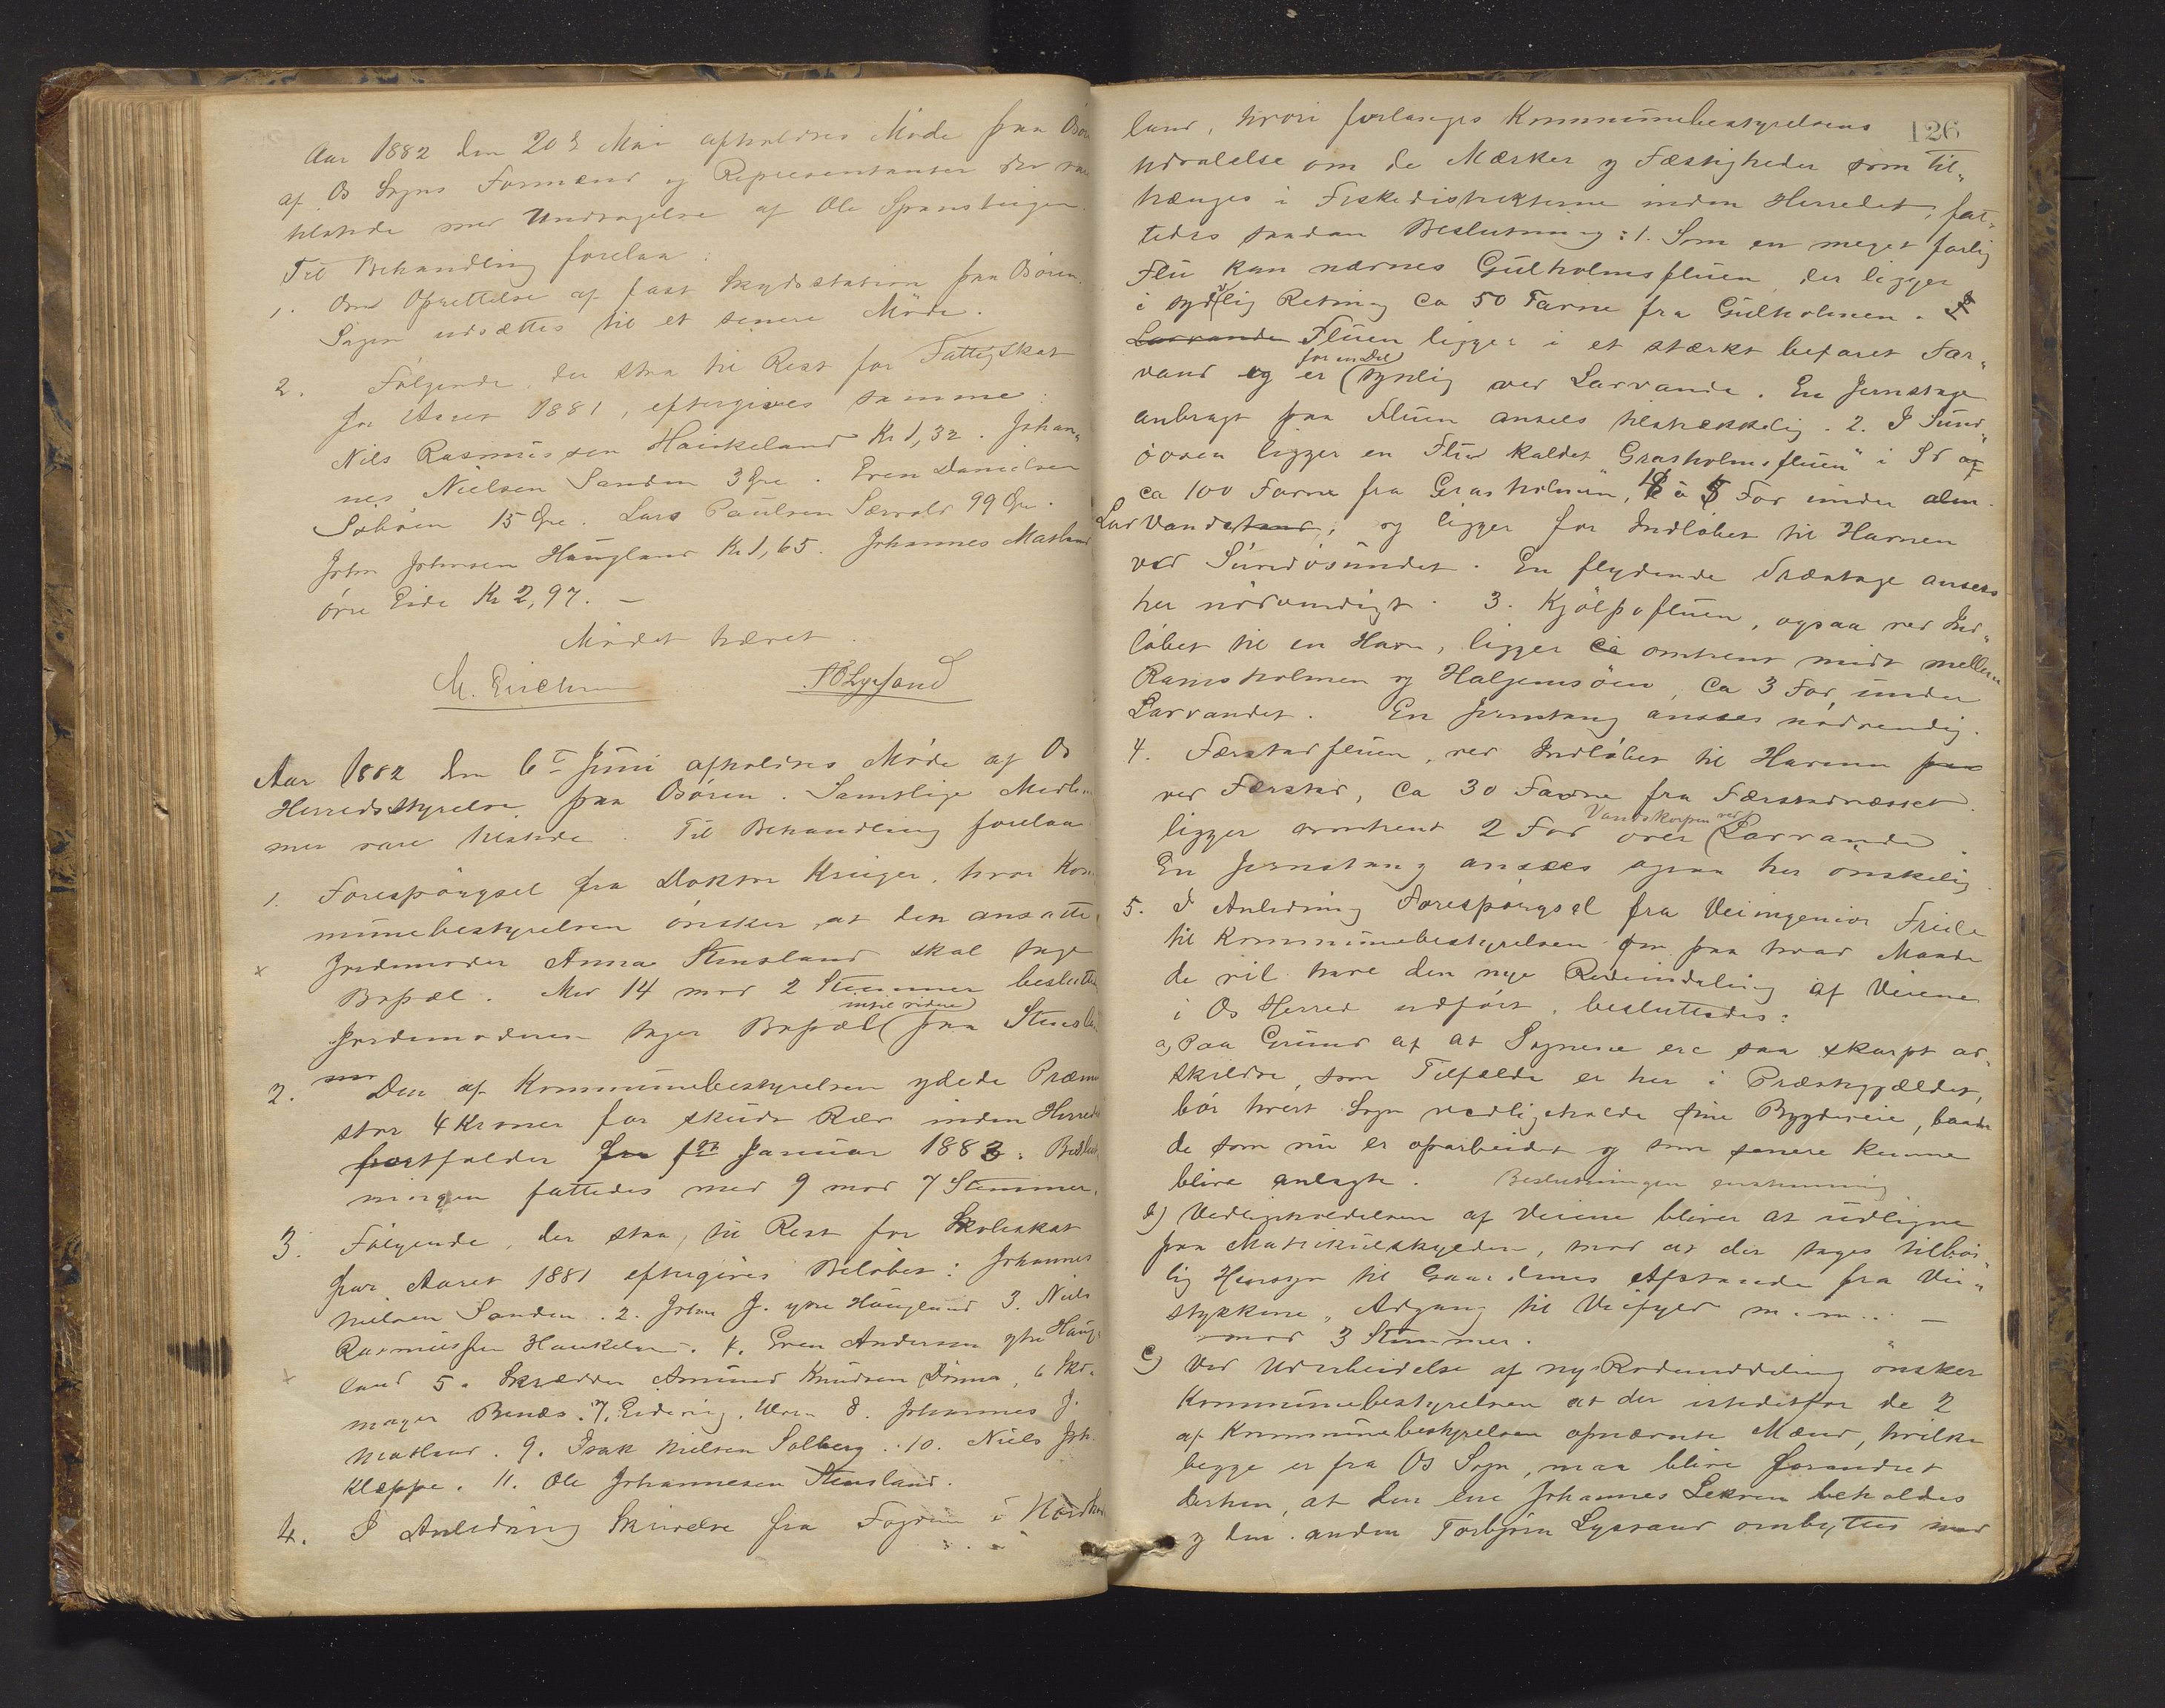 Aar 1882 den 20de Mai afholdtes Møde paa Osøren
af Os Sogns Formænd og Repræsentanter der var
tilstede med Undtagelse af Ole
Til Behandling forelaa:
1. Om Oprettelse af fast Skydsstation paa Osøren.
Sagen udsættes til et senere Møde.
2. Følgende, der staa til Rest for Fattigskat
for Aaret 1881, eftergives samme:
Nils Rasmussen Haukeland Kr 1,32. Johan„
nes Nielsen Sanden 3 Øre. Sven Danielsen
Søbøen 15 Øre. Lars Paulsen Særvold 99 Øre.
John Johnsen Haugland Kr 1,65. Johannes Matland
øvre Eide Kr 2,97. —
Mødet hævet.
M. Erichsen TBLysand
Aar 1882 den 6te Juni afholdtes Møde af Os
Herredsstyrelse paa Osøren. Samtlige Medlem
mer vare tilstede. Til Behandling forelaa
1. Forespørgsel fra Doktor Krüger, hvor Kom
munebestyrelsen ønsker, at den ansatte
x Jordemoder Anna Stensland skal tage
Bopæl. Med 14 mod 2 Stemmer besluttes
indtil videre
Jordemoderen tager Bopæl paa Stensland
2. Den af Kommunebestyrelsen ydede Præmie
stor 4 Kroner for skudt Ræv inden Herredet
bortfalder fra 1ste Januar 1883. Beslut
ningen fattedes med 9 mod 7 Stemmer.
3. Følgende, der staa, til Rest for Skoleskat
for Aaret 1881 eftergives Beløbet: Johannes
Nielsen Sanden. 2. John J. ytre Haugland 3. Niels
Rasmussen Haukeland. 4. Sven Andersen ytre Haug„
x land 5. Skrædder Amund Knudsen 6 Sko„
mager Benæs. 7. 8. Johannes J.
Matland. 9. Isak Nielsen Solberg. 10. Niels Joh.
Kleppe. 11. Ole Johannesen Stensland.
4. I Anledning Skrivelse fra Fogden i Nordhord
126
land, hvori forlanges Kommunebestyrelsens
Udtalelse om de Mærker og Fæstigheder som til„
trænges i Fiskedistrikterne inden Herredet, fat„
tedes saadan Beslutning: 1. Som en meget farlig
Flu kan nævnes Gulholmsfluen, der ligger
i sydlig Retning ca 50 Favne fra Gulholmen.
Lavvande Fluen ligger i et stærkt befaret Far„
for en Del
vand og er synlig ved Lavvande. En Jernstage
anbragt paa Fluen ansees tilstrækkelig. 2. I Sund„
øosen ligger en Flu kaldet „Grasholmsfluen" i Sv af
ca 100 Favne fra Grasholmen, á Fod under alm.
Lavvandstand, og ligger for Indløbet til Havnen
ved Sundøsundet. En flydende Træstage ansees
her nødvendigt. 3. Kjølpofluen, ogsaa ved Ind„
løbet til en Havn, ligger ca omtrent midt mellem
Ramsholmen og Halgjemsøen, ca 3 Fod under
Lavvandet. En Jernstang ansees nødvendig.
4. Færstadfluen, ved Indløbet til Havnen paa
ved Færstad, ca 30 Favne fra Færstadnæsset.
Vandskorpen ved
ligger omtrent 2 Fod over Lavvande
En Jernstang ansees ogsaa her ønskelig.
5. I Anledning Forespørgsel fra Veiingeniør Friele
til Kommunebestyrelsen om paa hvad Maade
de vil have den nye Rodeinddeling af Veiene
i Os Herred udført, besluttedes:
a) Paa Grund af at Sognene ere saa skarpt ad„
skildte, som Tilfælde er her i Præstegjældet,
bør hvert Sogn vedligeholde sine Bygdeveie, baade
de som nu er oparbeidet og som senere kunne
blive anlagte. Beslutningen enstemmig
b) Vedligeholdelsen af Veiene bliver at udligne
paa Matrikulskylden, mod at der tages tilbør„
lig Hensyn til Gaardenes Afstande fra Vei„
stykkerne, Adgang til Veifyld m. m. —
mod 3 Stemmer.
c) Ved Udarbeidelse af ny Rodeinddeling ønsker
Kommunebestyrelsen at der istedetfor de 2
af Kommunebestyrelsen opnævnte Mænd, hvilke
begge er fra Os Sogn, maa blive forandret
derhen, at den ene Johannes Lekven beholdes
og den anden Torbjørn Lyssand ombyttes med